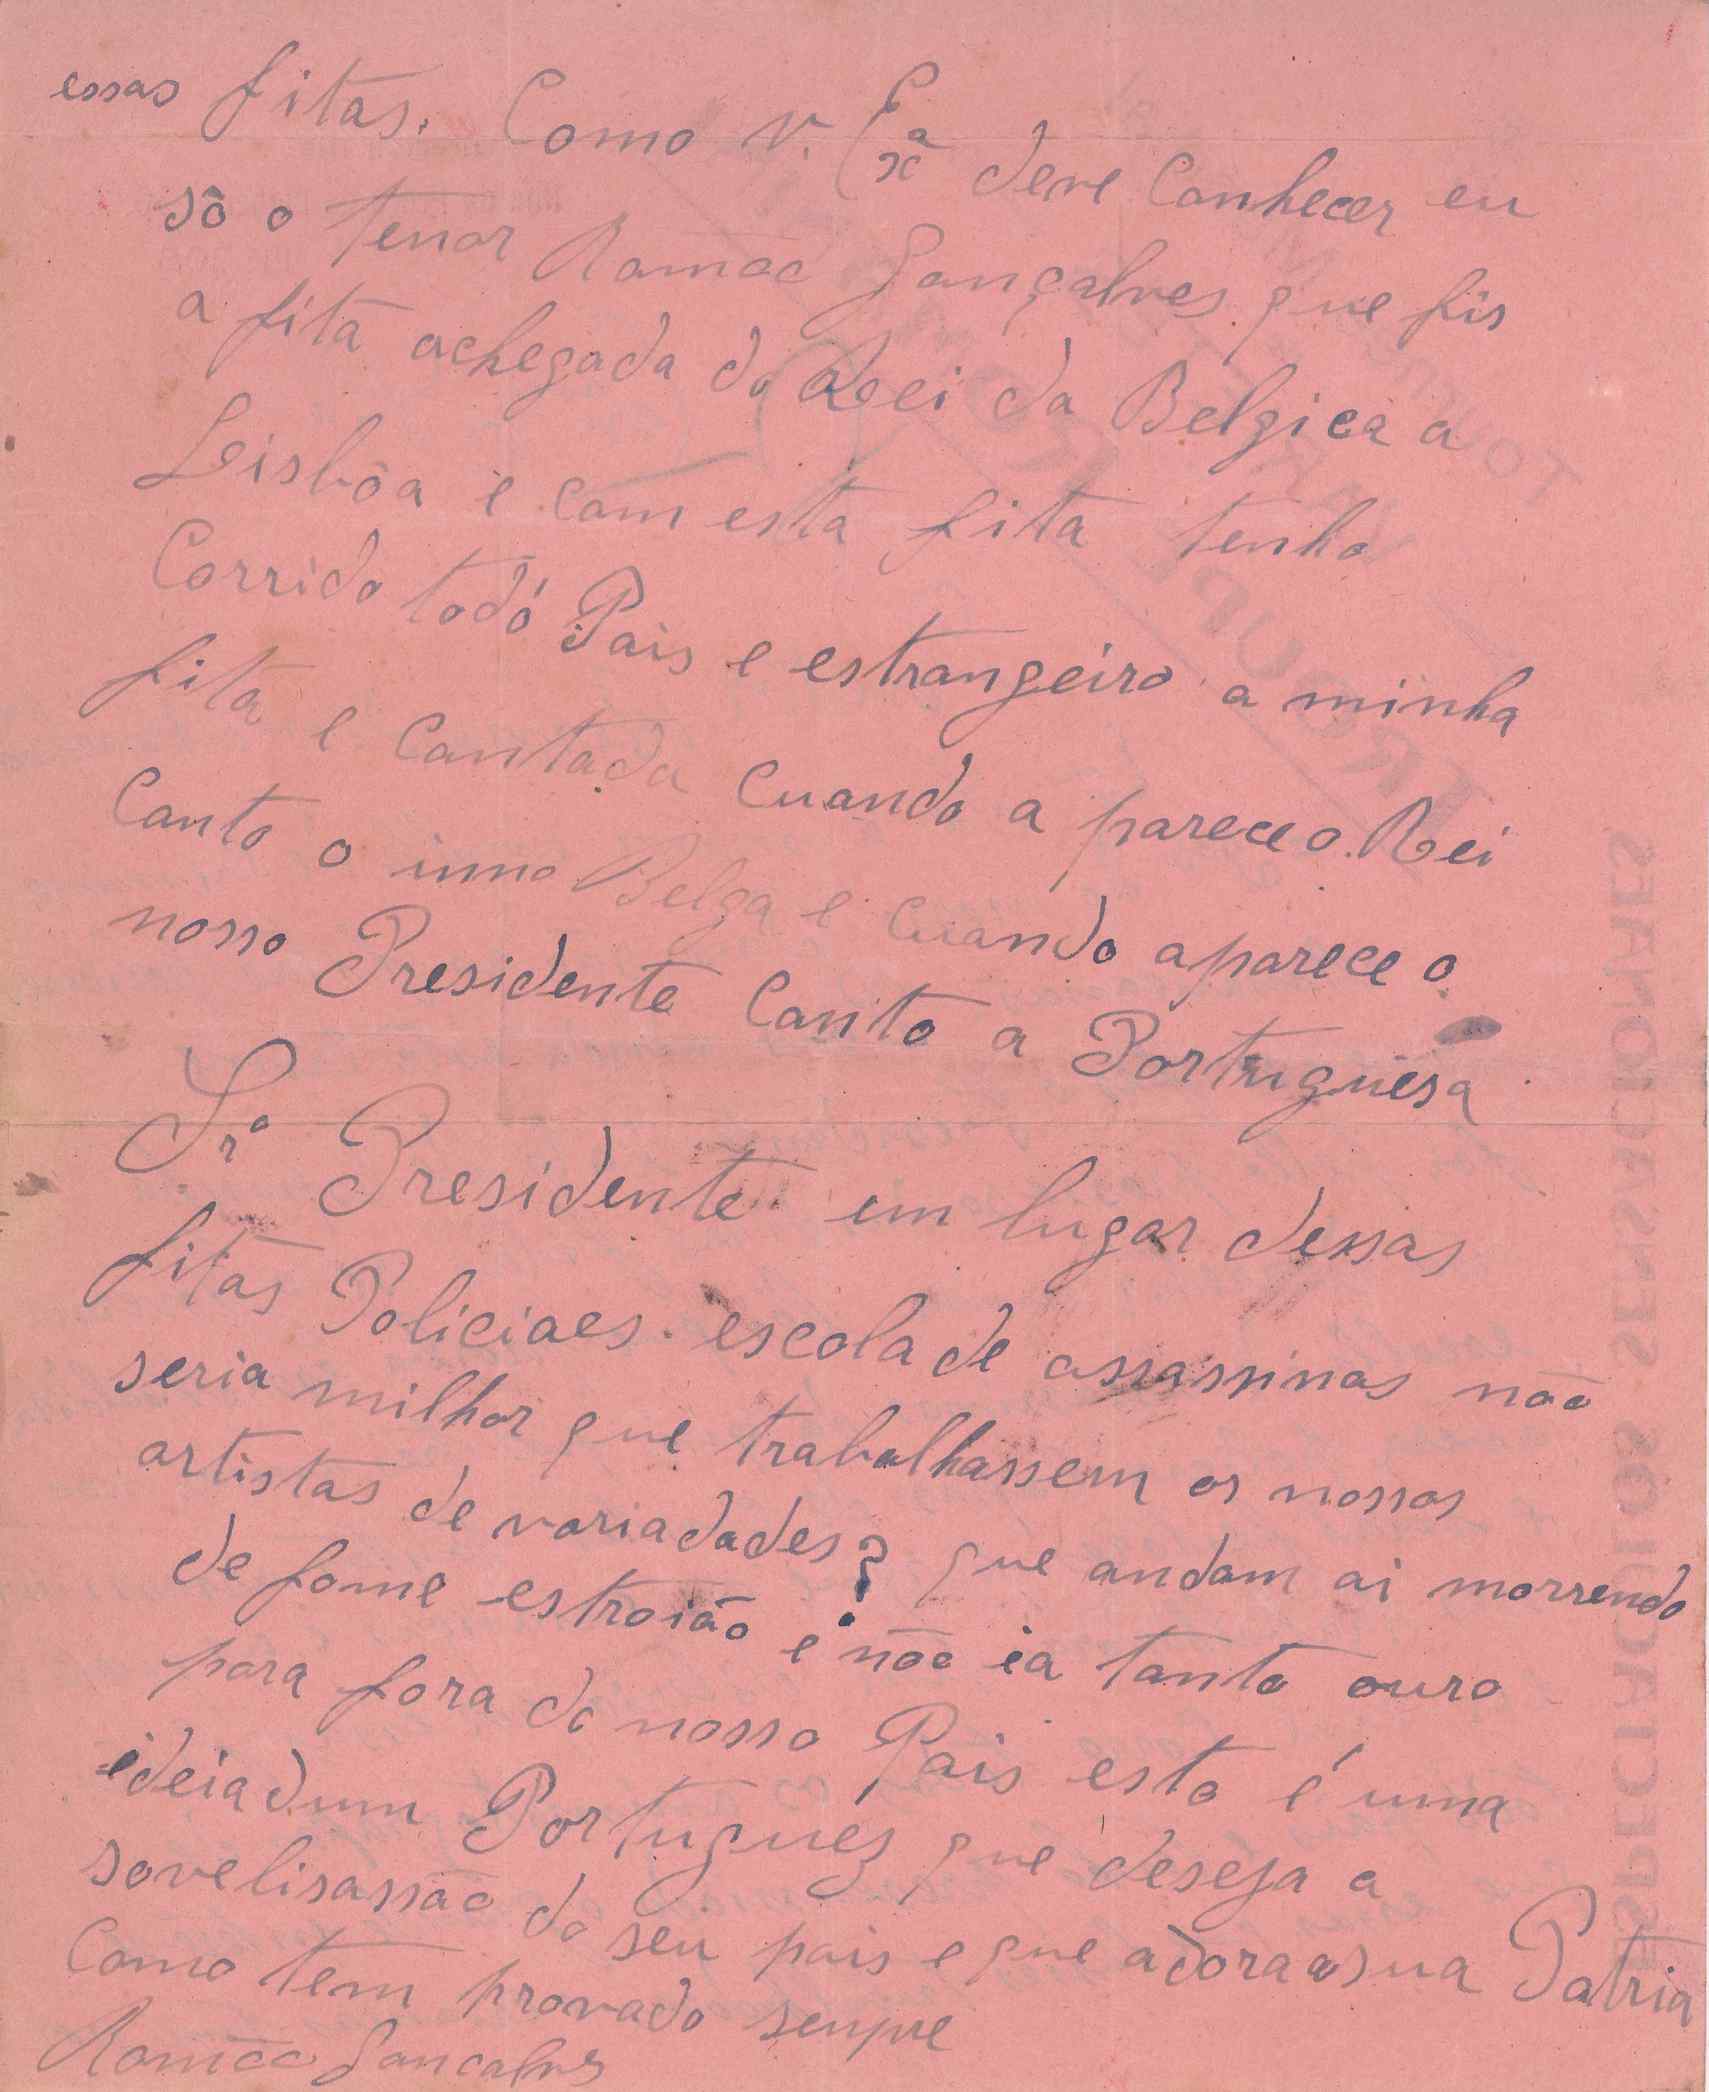 essas fitas. Como V. Exª deve Conhecer eu
sô o tenor Romão Gonçalves que fis
a fita achegada do Rei da Belgica a
Lisbôa e com esta fita tenho
Corrido todó Pais e estrangeiro a minha
fita e Cantada Cuando a parece o Rei
Canto o inno Belga e Cuando aparece o
nosso Presidente Canto a Portuguesa
Srº Presidente em lugar dessas
fitas Policiaes escola de assassinos não
seria milhor que trabalhassem os nossos
artistas de variadades? que andam ai morrendo
de fome estroião e não ia tanto ouro
para fora do nosso Pais esta é uma
ideia dum Portuguez que deseja a
sovelisassão do seu pais e que adora a sua Patria
Como tem provado senpre
Romão Goncalves
ESPECTACULOS SENSACIONAES